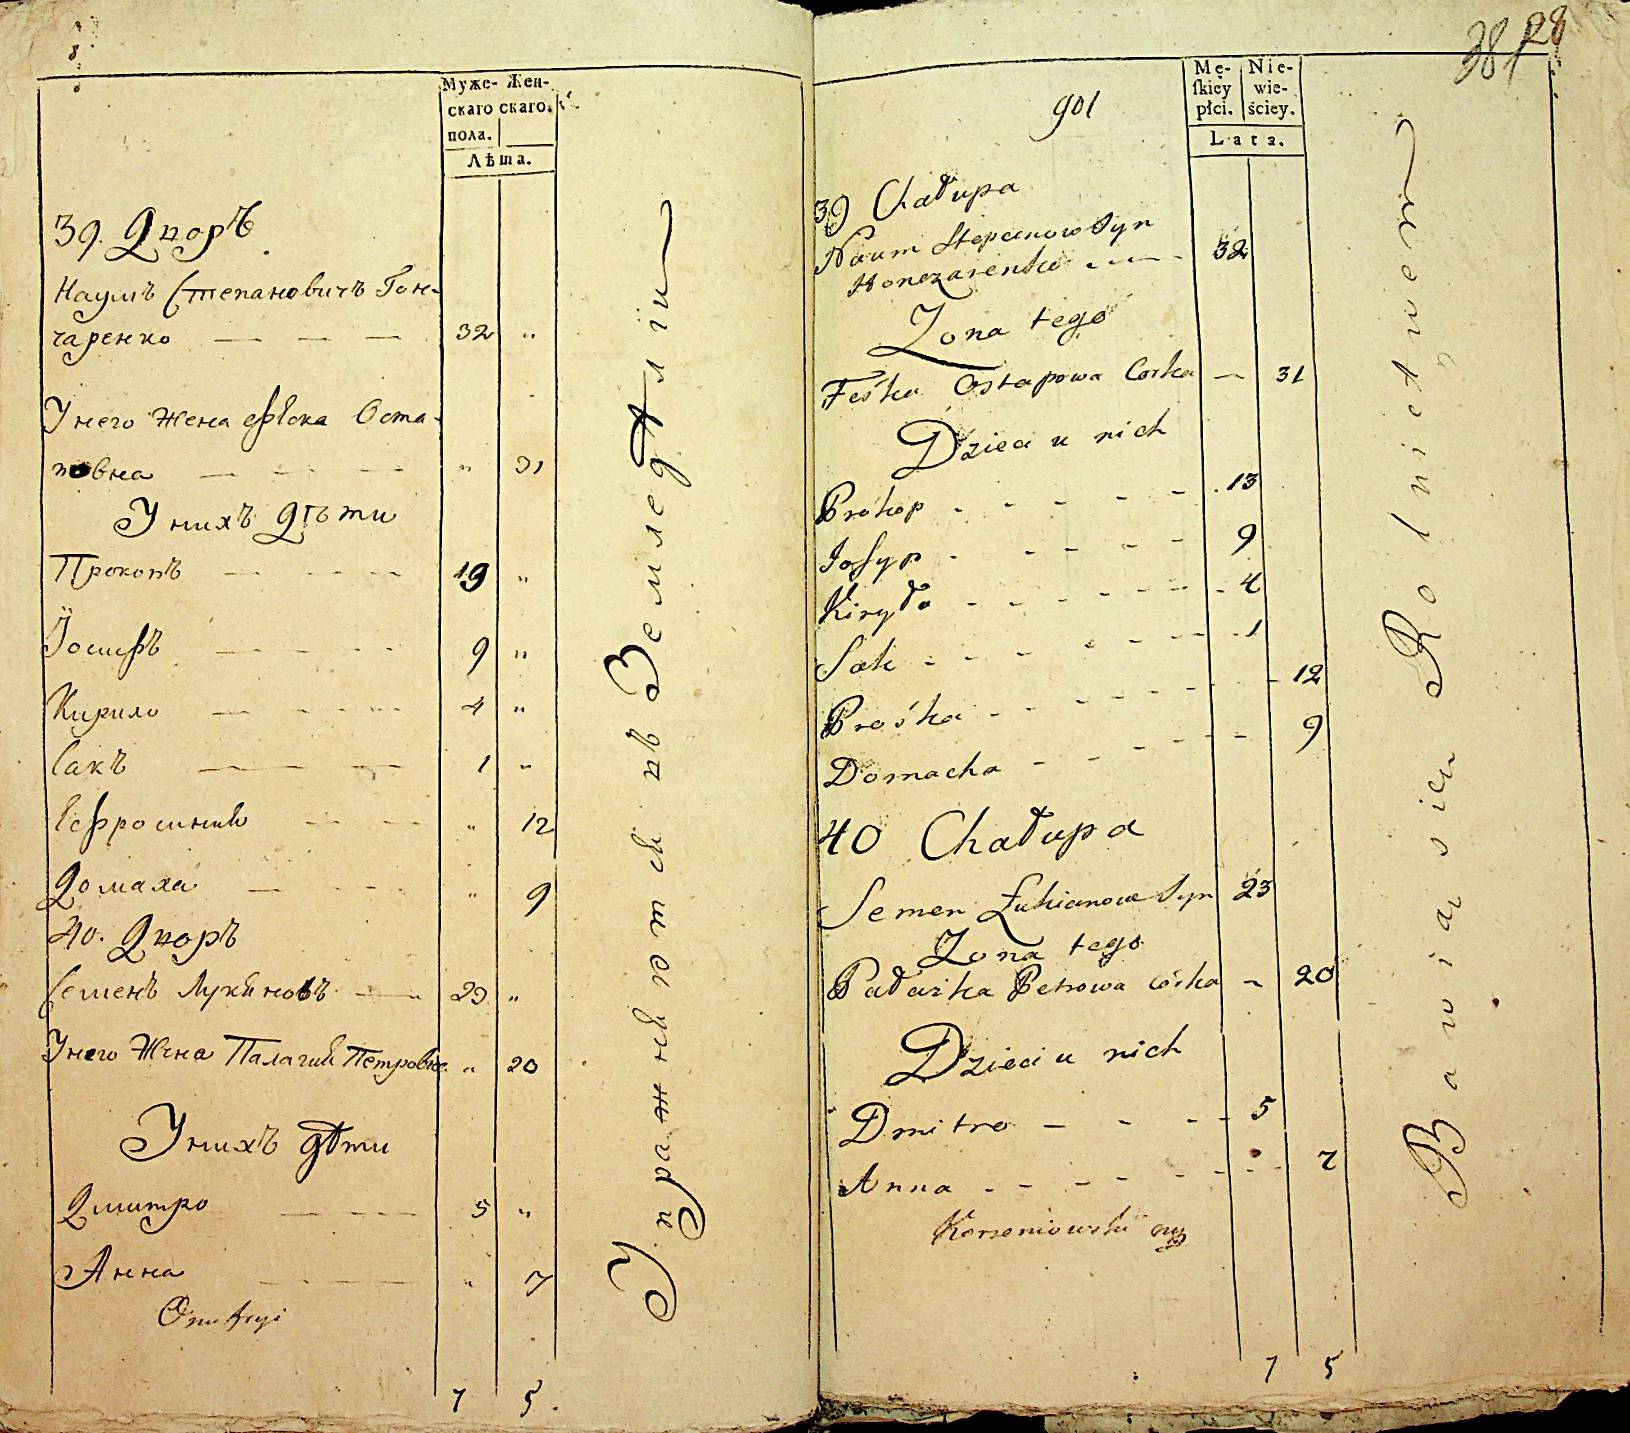 8
Муже- Жен-
скаго скаго.
пола.
Лѣта.
39. Дворъ
Наумъ Степановичъ Гон-
чаренко — — — 32 "
У него жена Фѣска Оста-
повна — — — " 31
У нихъ дѣти
Прокопъ — — — 13 "
Йосифъ — — — 9 "
Кирило — — — 4 "
Сакъ — — — 1 "
Ефросинія — — " 12
Домаха — — — " 9
40. Дворъ
Семенъ Лукяновъ — 23 "
У него Жена Палагия Петровна " 20
У нихъ дѣти
Дмитро — — 5 "
Анна — — — " 7
7 5
Упражняются въ Земледѣлiи
38 28
Mę- Nie-
skiey wie-
płci. ściey.
Lata.
901
39 Chałupa
Naum Stepanow Syn
Honczarenko - - - - 32
Zona tego
Feśka Ostapowa Corka — 31
Dzieci u nich
Prokop - - - - - 13
Josyp - - - - - 9
Kiryło - - - - - - 4
Sak - - - - - - - 1
Prośka - - - - - - - 12
Domacha - - - - - - 9
40 Chałupa
Semen Łukianow Syn 23
Zona tego
Pałażka Petrowa córka — 20
Dzieci u nich
Dmitro — - - - 5
Anna - - - - - - - 7
Korzeniowski
7 5
Bawią się Rolnictwem